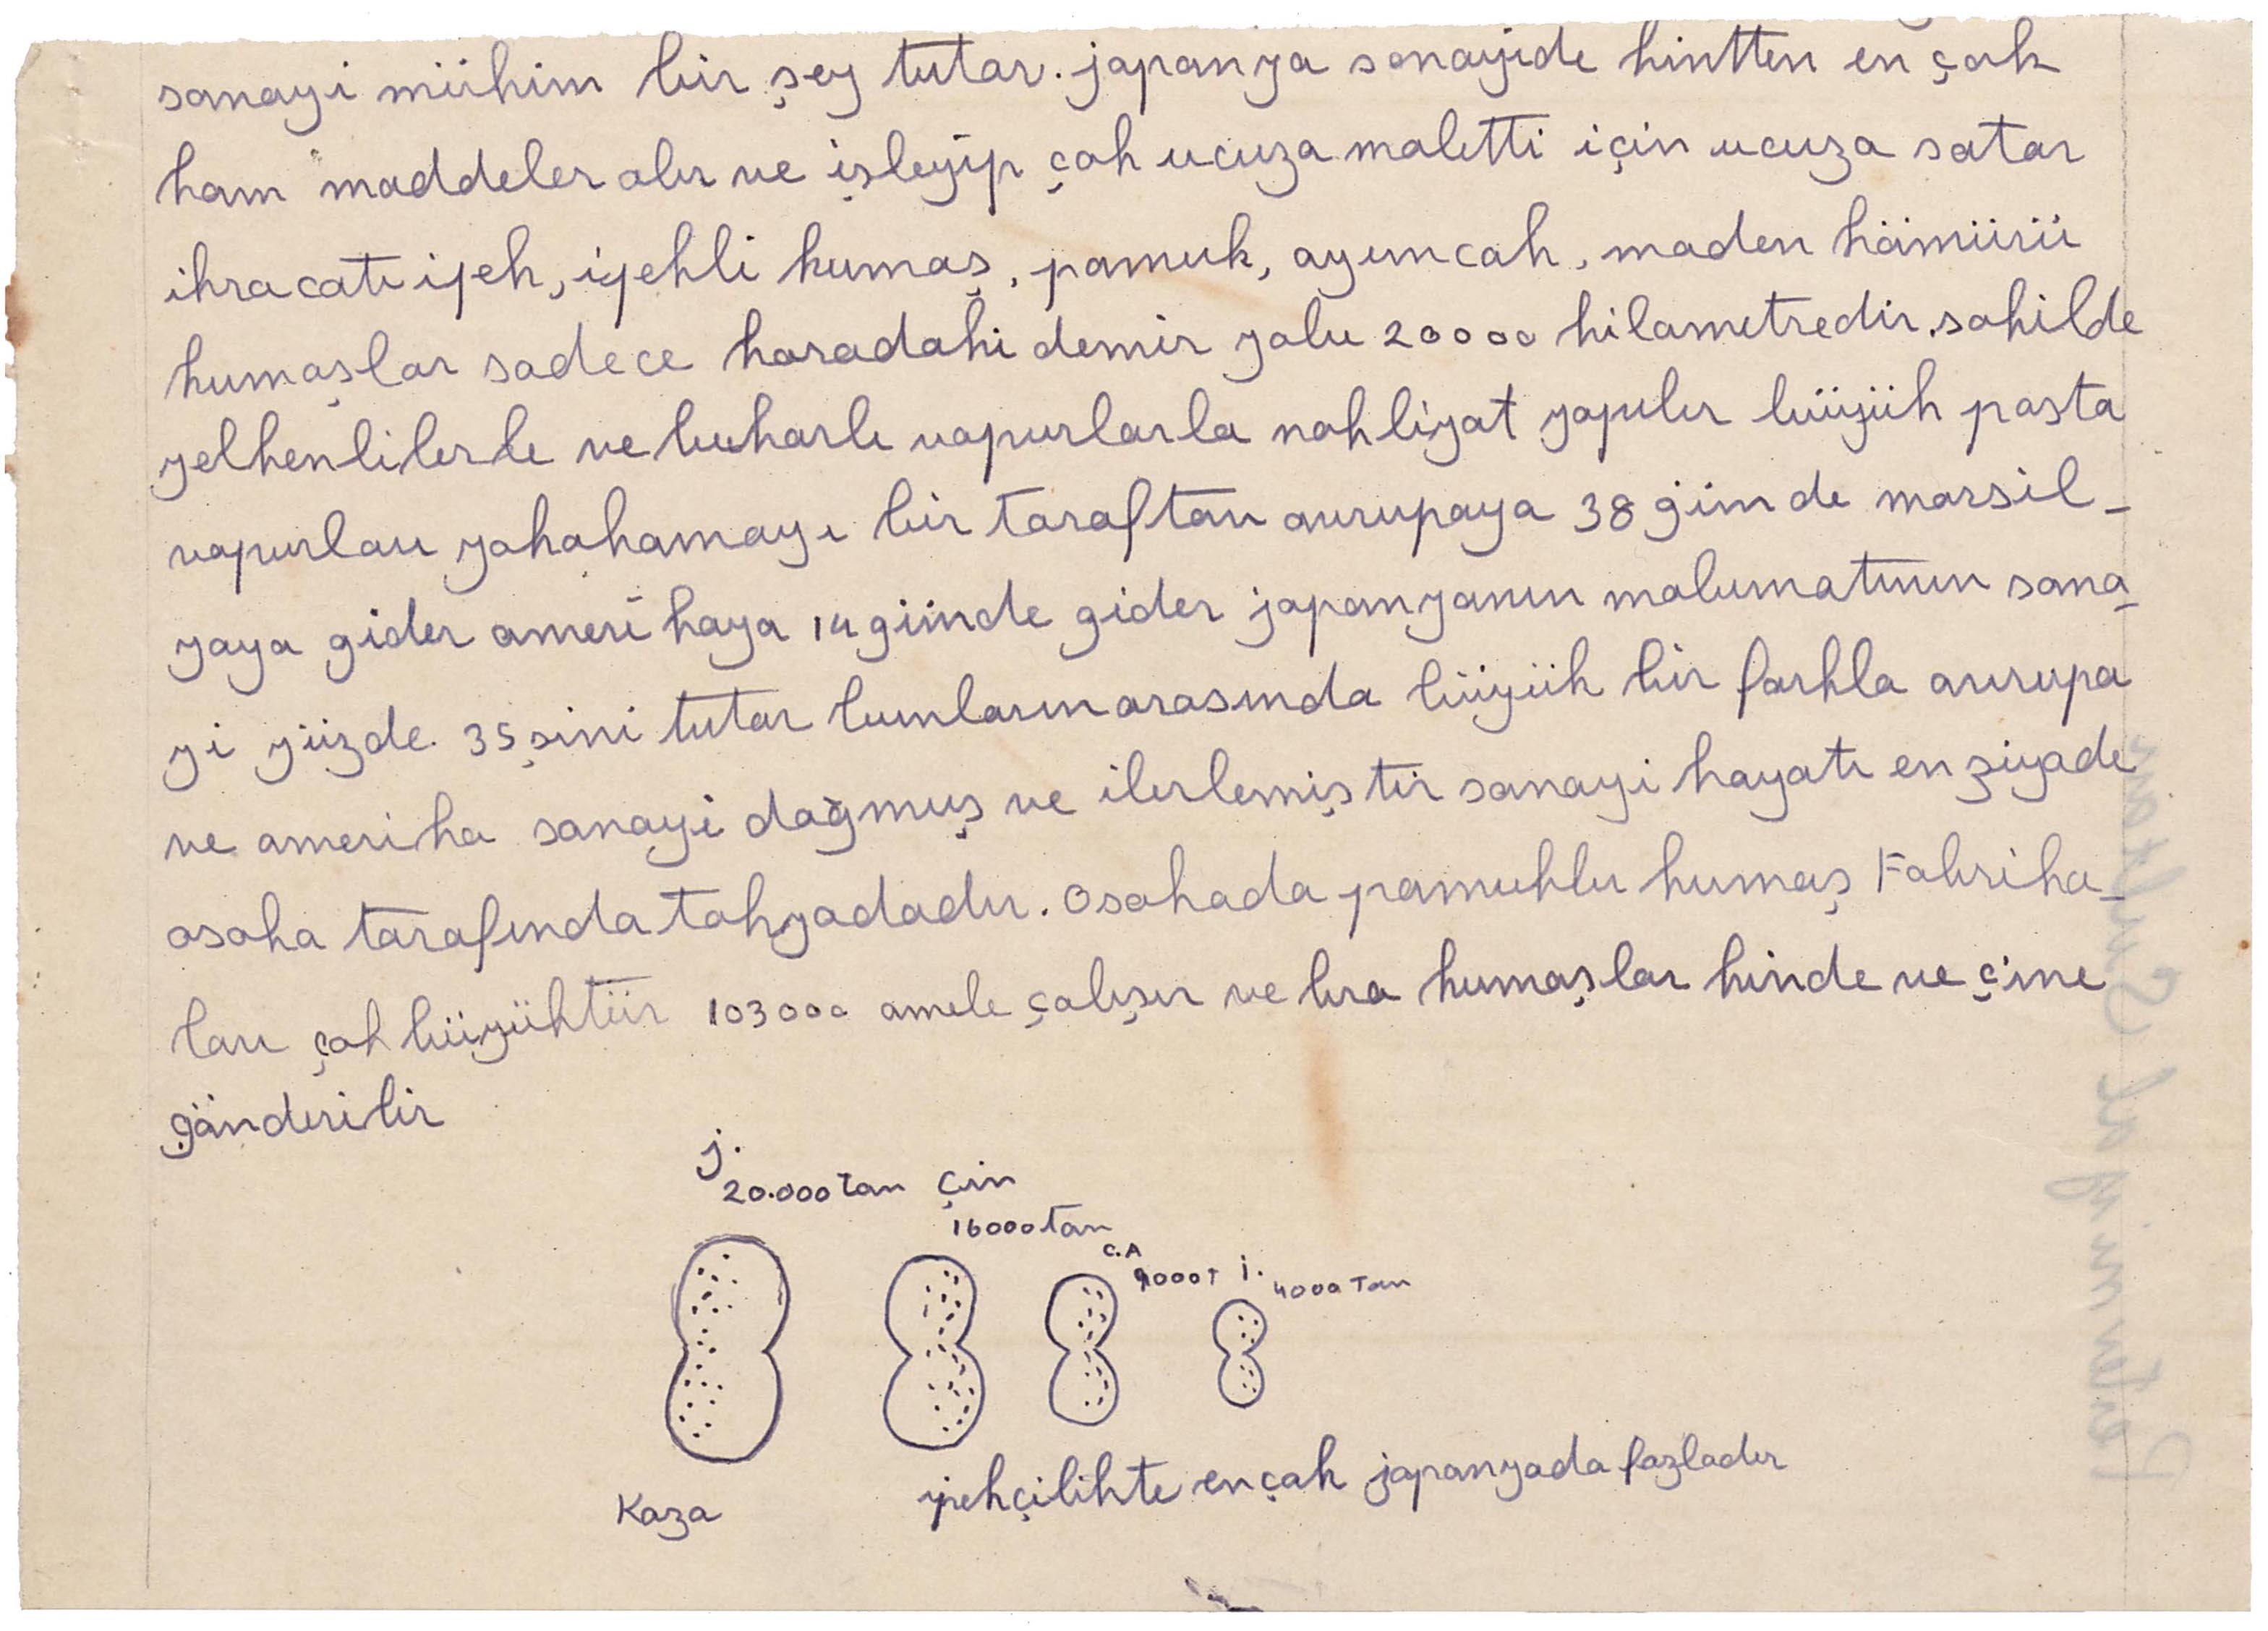 sanayi mühim bir şey tutar. japanya sanayide hintten en çok
ham maddeler alır ve işleyip çok ucuza maletti için ucuza satar
ihracatı ipek, ipekli kumaş, pamuk, oyuncak, maden kömürü
kumaşlar sadece karadaki demir yolu 20000 kilometredir. sahilde
yelkenlilerle ve buharlı vapurlarla nakliyat yapılır büyük posta
vapurları yokohamayı bir taraftan avrupaya 38 günde marsil-
yaya gider amerikaya 14 günde gider japanyanın malumatının sana-
yi yüzde 35şini tutar bunların arasında büyük bir farkla avrupa
ve amerika sanayi doğmuş ve ilerlemiştir sanayi hayatı en ziyade
osaka tarafında tokyadadır. Osakada pamuklu kumaş Fabrika-
ları çok büyüktür 103000 amele çalışır ve bra kumaşlar hinde ve çine
gönderilir
j.
20.000 ton çin
16000 ton
C.A
9000 T i. 4000 Ton
Koza ipekçilikte en çok japanyada fazladır